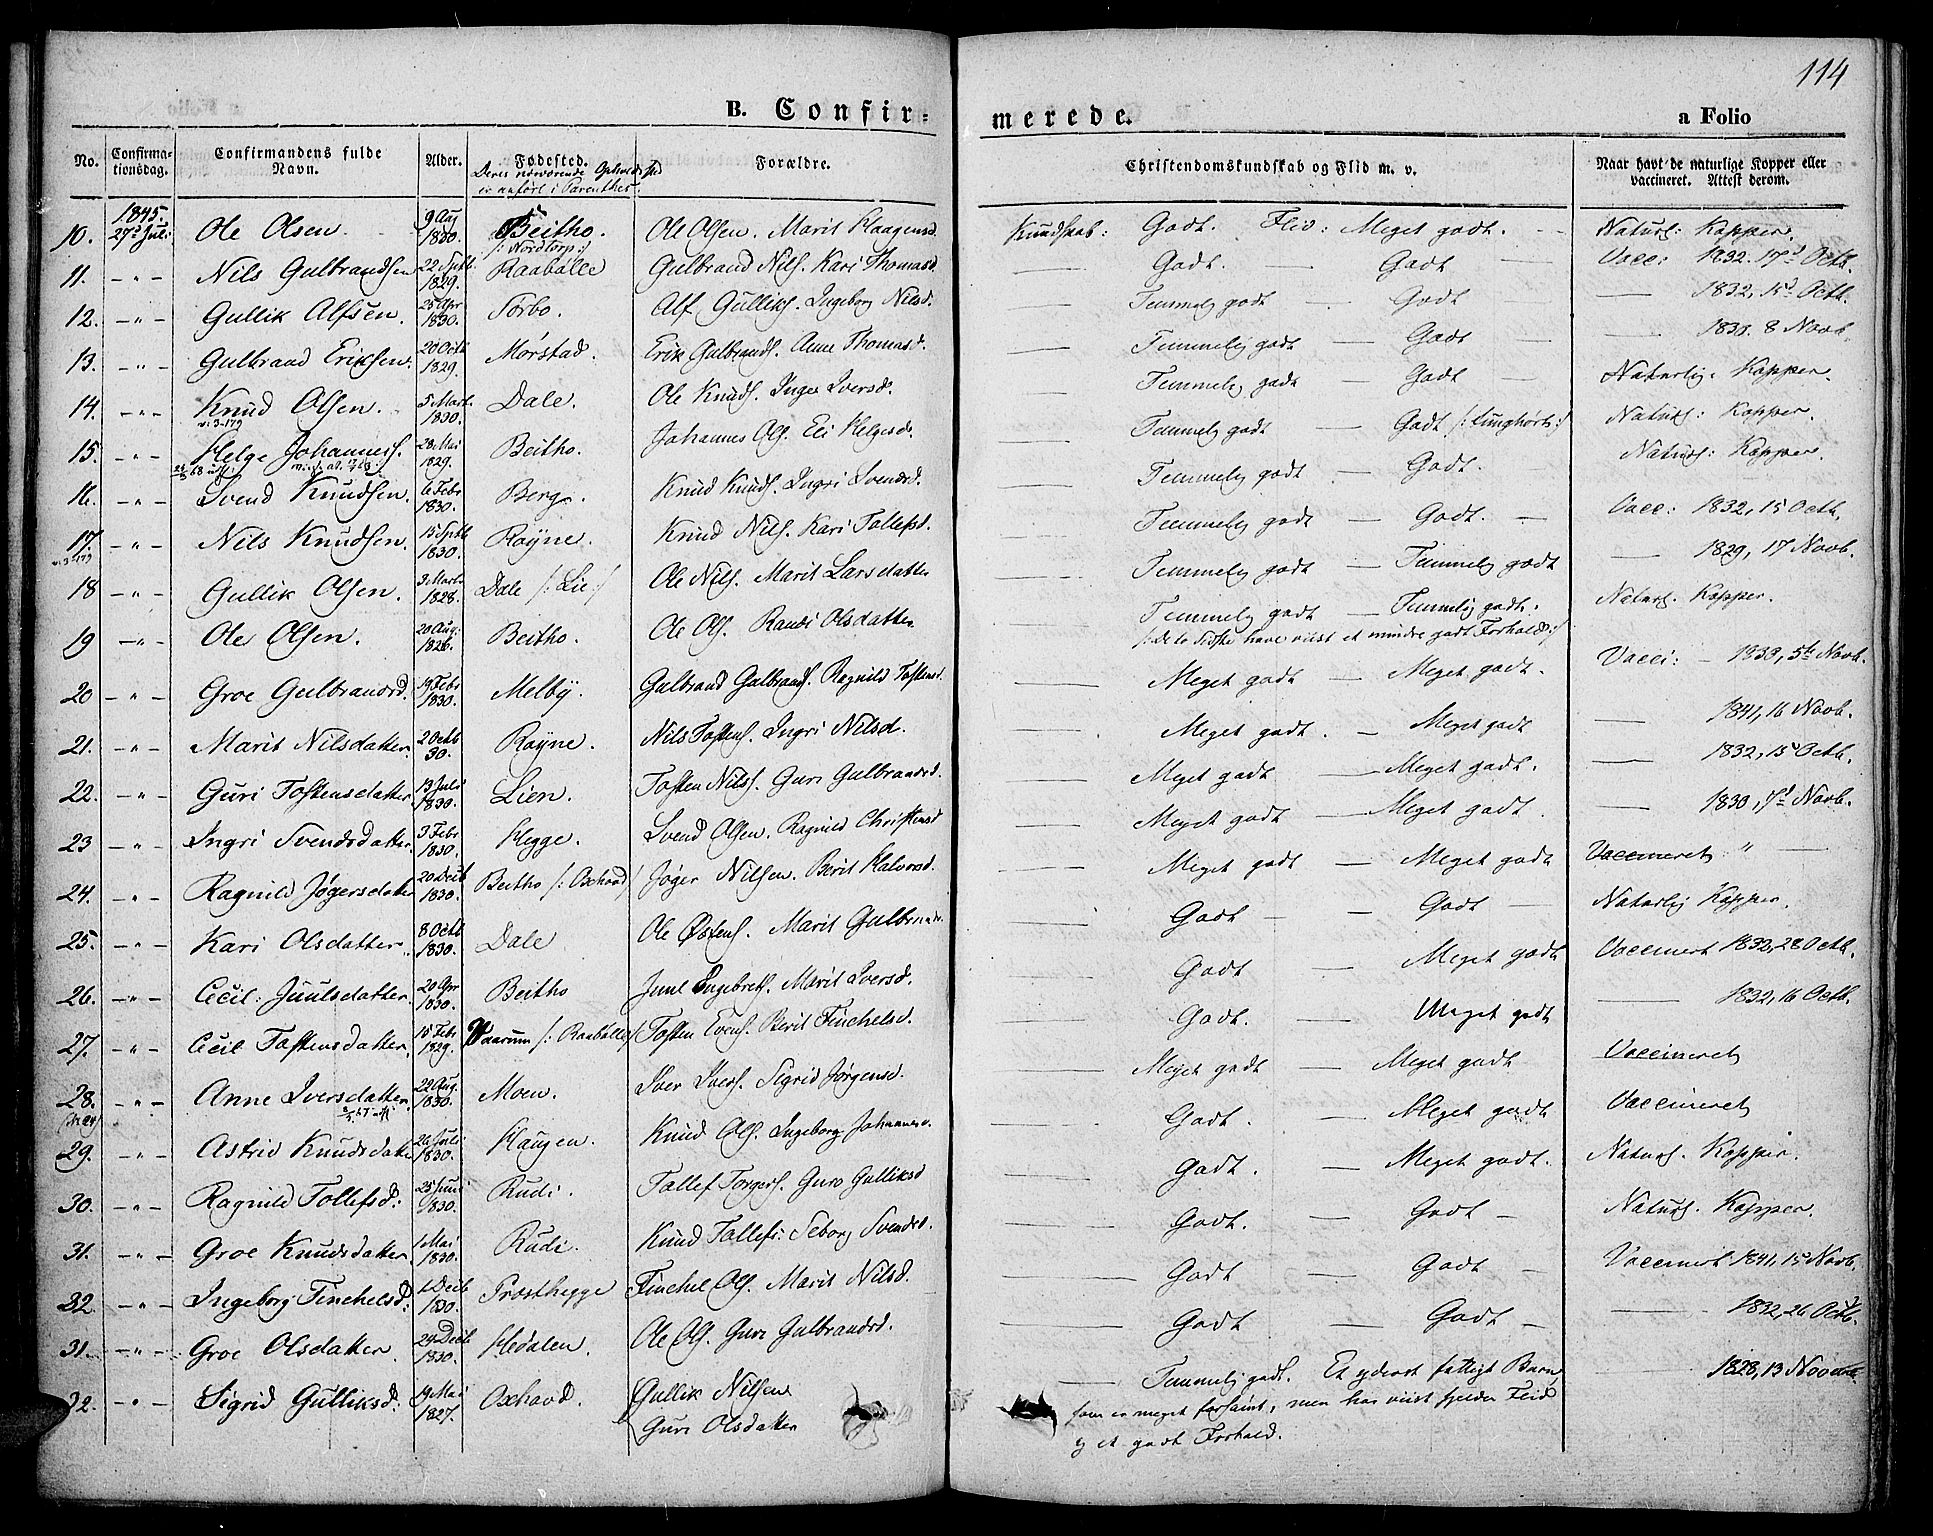 114
B. Confir=
merede.
a Folio
No. Confirma-tionsdag. Confirmandens fulde Navn. Alder. Fødested. Forældre. Christendomskundskab og Flid m. v. Naar havt de naturlige Kopper eller vaccineret. Attest derom.
Deres nærværende
er anført i Parenthes
1845.
10. 27d Juli Ole Olsen. 9 Aug 1830. Beitho. /:Nordtorp:/ Ole Olsen. Marit Haagensd. Kundskab: Godt. Flid: Meget godt. Naturl: Kopper.
11. — " — Nils Gulbrandsen 22 Sptb. 1829. Raabølle Gulbrand Nils. Kari Thomasd. — Godt. — Godt — Vacc: 1832. 17d Octb.
12. — " — Gullik Alfsen. 25 Apr 1830. Sørbo. Alf Gulliks. Ingeborg Nilsd. — Temmelig godt — Godt — 1832, 15d Octb.
13. — " — Gulbrand Eriksen. 20 Octb 1829. Mørstad. Erik Gulbrands. Anne Thomasd. — Temmelig godt — Godt — 8 Novb.
14. — " — Knud Olsen. 5 Mart. 1830. Dale. Ole Knuds. Inger Iversd. — Temmelig godt — Godt — Naturlig. Kopper.
15. — " — Helge Johanness. 28 Mai 1829. Beitho. Johannes Ols. Eli Helgesd. — Temmelig godt — Godt /:tunghørt:/ Naturl: Kopper.
16. — " — Svend Knudsen. 6 Febr 1830. Berge. Knud Knuds. Ingri Svendsd. — Temmelig godt — Godt. Naturl: Kopper.
17. — " — Nils Knudsen. 15 Sptb 1830. Røyne. Knud Nils. Kari Tollefsd. — Temmelig godt — Godt. — Vacc: 1832, 15 Octb.
18 — " — Gullik Olsen. 3 Marts 1828. Dale /:Lie:/ Ole Nils. Marit Larsdatter — Temmelig godt — Temmelig godt — 1829, 17 Novb.
19 — " — Ole Olsen. 20 Aug. 1826. Beitho. Ole Ols. Randi Olsdatter — Temmelig godt — Temmelig godt. Naturl. Kopper.
/:de to Sidste have viist et mindre godt Forhold:/
20 — " — Groe Gulbrandsd. 19 Febr 1830. Melby. Gulbrand Gulbrands. Ragnild Tostensd. — Meget godt — Meget godt. Vacci: — 1833, 5te Novb.
21. — " — Marit Nilsdatter. 2 Octb 30. Røyne. Nils Tostens. Ingri Nilsd. — Meget godt. — Meget godt — 1841, 16 Novb.
22. — " — Guri Tostensdatter. 13 Juli 1830. Lien. Tosten Nilss. Guri Gulbrandsd. — Meget godt — Meget godt. — 1832, 15 Octb.
23 — " — Ingri Svendsdatter. 3 Febr 1830. Hegge. Svend Olsen. Ragnild Christensd — Meget godt — Meget godt. — 1830, 7d Novb.
24. — " — Ragnild Jøgersdatter 20 Decb 1830. Beitho /:Oxhovd/ Jøger Nilsen. Berit Halvorsd. — Meget godt — Meget godt Vaccineret " —
25. — " — Kari Olsdatter. 8 Octb 1830. Dale Ole Østens. Marit Gulbrandsd. — Godt — Godt — Naturlig Kopper.
26. — " — Cecil: Juulsdatter. 20 Apr 1830. Beitho Juul Engebrets. Marit Iversd. — Godt — Meget godt Vaccineret 1832, 28 Octb.
27. — " — Cecil Tostensdatter. 15 Febr 1829. /:Raabølle/ Tosten Evens. Berit Finchelsd. — Godt. — Meget godt — 1832, 16 Octb.
28. — " — Anne Iversdatter. 22 Aug. 1830. Moen. Iver Ivers. Sigrid Jørgensd. — Meget godt — Meget godt Vaccineret
29. — " — Astrid Knudsdatter 26 Juli 1830. Haugen. Knud Ols. Ingeborg Johannesd. — Godt. — Meget godt Vaccineret
30. — " — Ragnild Tollefsd: 25 Juni 1830. Rudi. Tollef Torgers. Guro Gulliksd — Godt. — Meget godt. Naturl. Kopper.
31. — " — Groe Knudsdatter 1 Mai 1830. Rudi. Knud Tollefs: Seborg Svendsd. — Godt. — Godt — Naturl. Kopper.
32 — " — Ingeborg Finchelsd: 1 Decb 1830. Prosthegge Finchel Ols. Marit Nilsd. — Godt — Godt — Vaccineret 1841, 15 Novb.
31. — " — Groe Olsdatter. 24 Decb 1830. Hedalen. Ole Ols. Guri Gulbrandsd. — Godt — Godt — 1832, 26 Octb.
32. — " — Sigrid Gulliksd: 19 Mai 1827. Oxhovd. Gullik Nilsen Guri Olsdatter — Temmelig godt. Et yderst fattigt Barn, — 1828, 13 Novemb.
som er meget forsømt, men har viist sjelden Flid
og et godt Forhold.